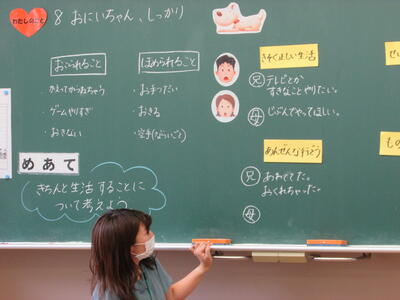 わたしのこと
8 おにいちゃん、しっかり
おこられること
・かえってからねちゃう
・ゲームやりすぎ
・おきない
ほめられること
・お手つだい
・おきる
・空手(ならいごと)
めあて
きちんと生活することに
ついて考えよう
きそく正しい生活
兄 テレビとか
すきなことやりたい。
母 じぶんでやってほしい。
あんぜんな行どう
兄 あわててた。
おくれちゃった。
母
せい
もの